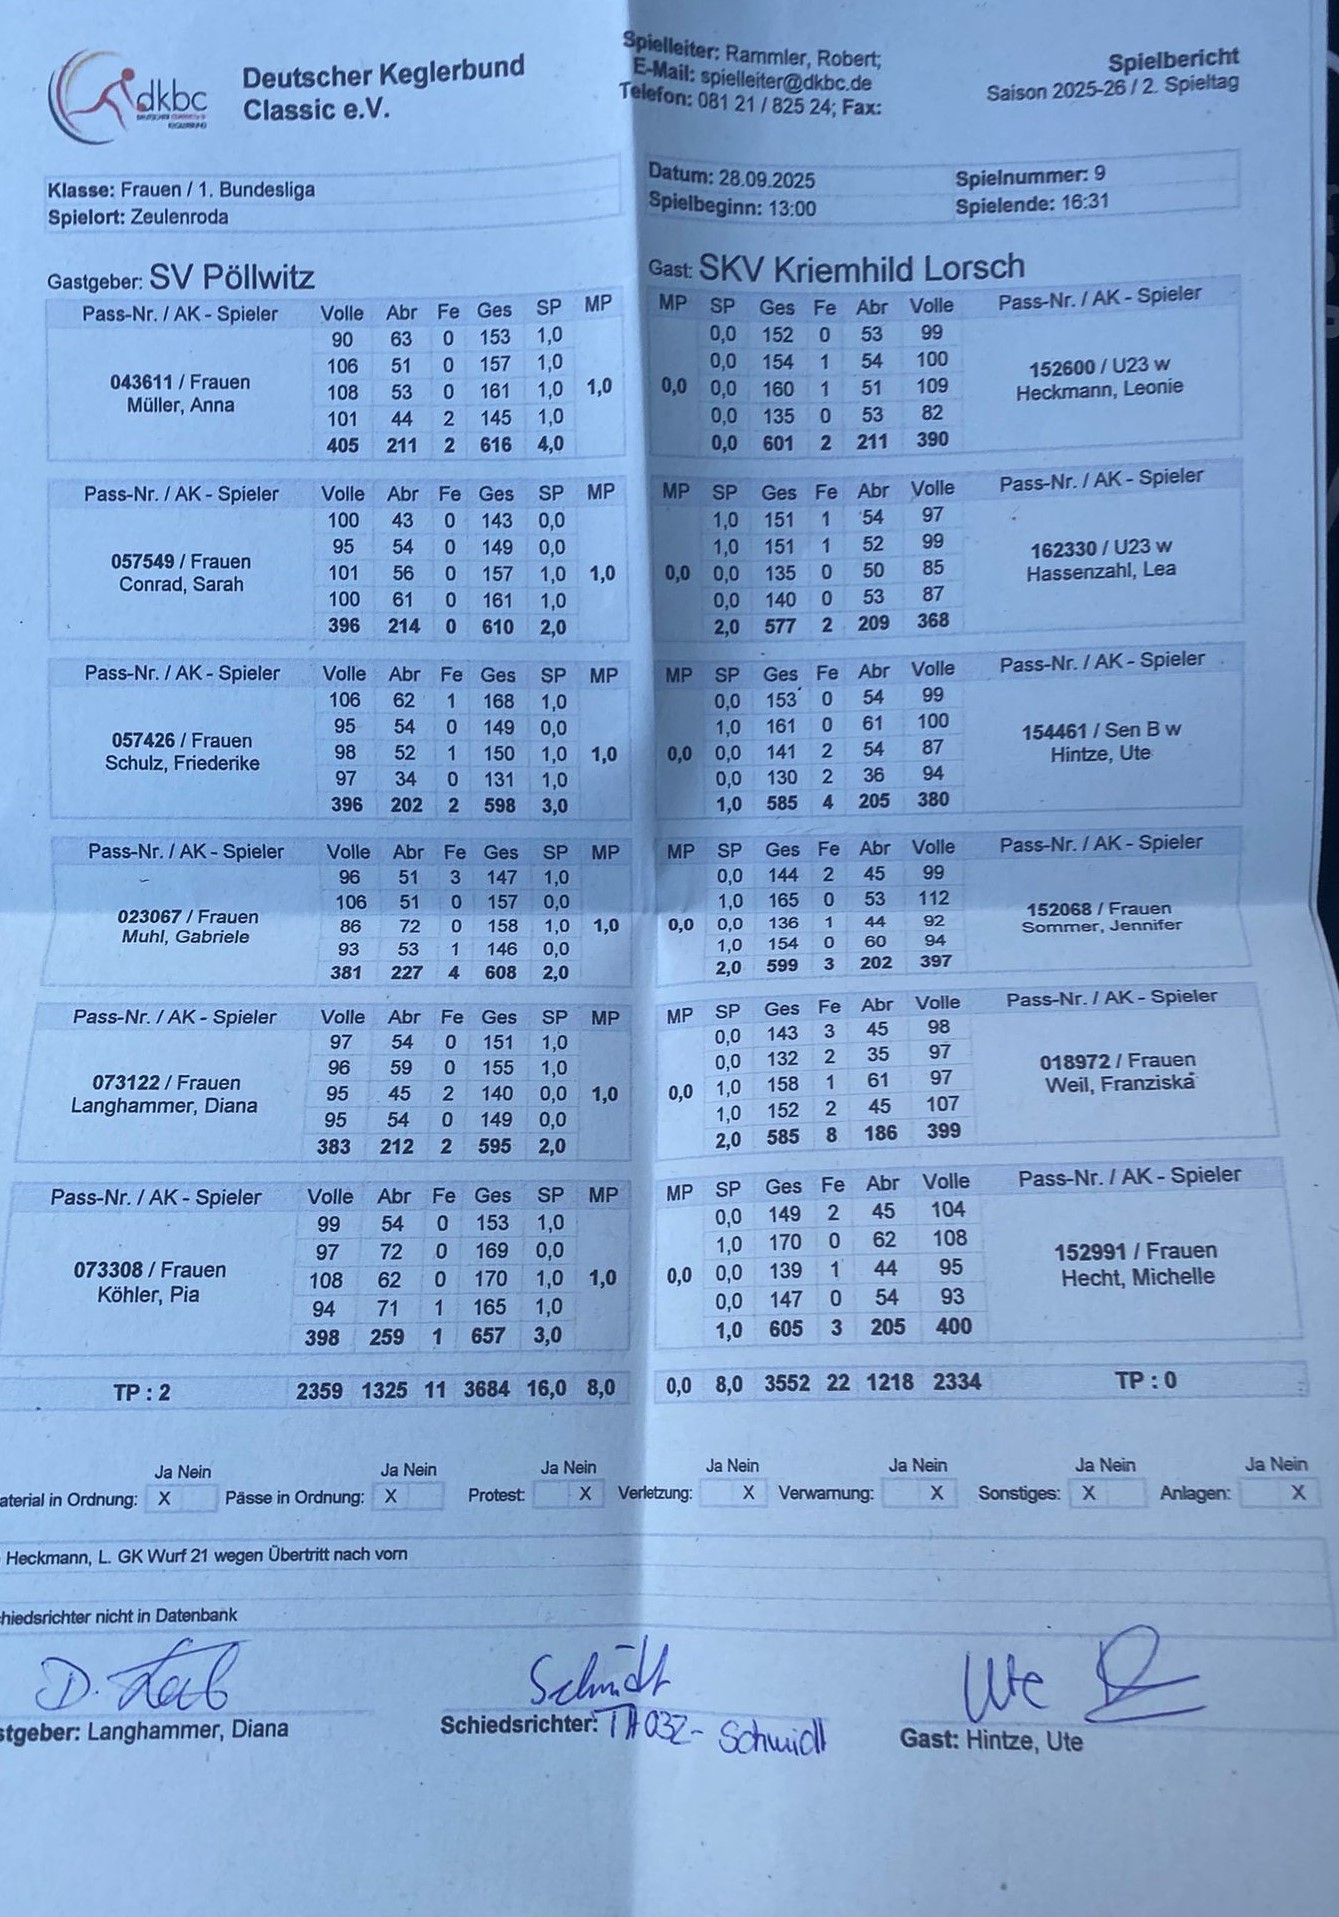 dkbc
Deutscher Keglerbund
Classic e.V.
Spielleiter: Rammler, Robert;
E-Mail: spielleiter@dkbc.de
Telefon: 081 21 / 825 24; Fax:
Spielbericht
Saison 2025-26 / 2. Spieltag
Klasse: Frauen / 1. Bundesliga
Spielort: Zeulenroda
Datum: 28.09.2025 Spielnummer: 9
Spielbeginn: 13:00 Spielende: 16:31
Gastgeber: SV Pöllwitz Gast: SKV Kriemhild Lorsch
Pass-Nr. / AK - Spieler Volle Abr Fe Ges SP MP MP SP Ges Fe Abr Volle Pass-Nr. / AK - Spieler
90 63 0 153 1,0 0,0 152 0 53 99
106 51 0 157 1,0 0,0 154 1 54 100
043611 / Frauen 108 53 0 161 1,0 1,0 0,0 0,0 160 1 51 109 152600 / U23 w
Müller, Anna 101 44 2 145 1,0 0,0 135 0 53 82 Heckmann, Leonie
405 211 2 616 4,0 0,0 601 2 211 390
Pass-Nr. / AK - Spieler Volle Abr Fe Ges SP MP MP SP Ges Fe Abr Volle Pass-Nr. / AK - Spieler
100 43 0 143 0,0 1,0 151 1 54 97
95 54 0 149 0,0 1,0 151 1 52 99
057549 / Frauen 101 56 0 157 1,0 1,0 0,0 0,0 135 0 50 85 162330 / U23 w
Conrad, Sarah 100 61 0 161 1,0 0,0 140 0 53 87 Hassenzahl, Lea
396 214 0 610 2,0 2,0 577 2 209 368
Pass-Nr. / AK - Spieler Volle Abr Fe Ges SP MP MP SP Ges Fe Abr Volle Pass-Nr. / AK - Spieler
106 62 1 168 1,0 0,0 153 0 54 99
95 54 0 149 0,0 1,0 161 0 61 100
057426 / Frauen 98 52 1 150 1,0 1,0 0,0 0,0 141 2 54 87 154461 / Sen B w
Schulz, Friederike 97 34 0 131 1,0 0,0 130 2 36 94 Hintze, Ute
396 202 2 598 3,0 1,0 585 4 205 380
Pass-Nr. / AK - Spieler Volle Abr Fe Ges SP MP MP SP Ges Fe Abr Volle Pass-Nr. / AK - Spieler
96 51 3 147 1,0 0,0 144 2 45 99
106 51 0 157 0,0 1,0 165 0 53 112
023067 / Frauen 86 72 0 158 1,0 1,0 0,0 0,0 136 1 44 92 152068 / Frauen
Muhl, Gabriele 93 53 1 146 0,0 1,0 154 0 60 94 Sommer, Jennifer
381 227 4 608 2,0 2,0 599 3 202 397
Pass-Nr. / AK - Spieler Volle Abr Fe Ges SP MP MP SP Ges Fe Abr Volle Pass-Nr. / AK - Spieler
97 54 0 151 1,0 0,0 143 3 45 98
96 59 0 155 1,0 0,0 132 2 35 97
073122 / Frauen 95 45 2 140 0,0 1,0 0,0 1,0 158 1 61 97 018972 / Frauen
Langhammer, Diana 95 54 0 149 0,0 1,0 152 2 45 107 Weil, Franziska
383 212 2 595 2,0 2,0 585 8 186 399
Pass-Nr. / AK - Spieler Volle Abr Fe Ges SP MP MP SP Ges Fe Abr Volle Pass-Nr. / AK - Spieler
99 54 0 153 1,0 0,0 149 2 45 104
97 72 0 169 0,0 1,0 170 0 62 108
073308 / Frauen 108 62 0 170 1,0 1,0 0,0 0,0 139 1 44 95 152991 / Frauen
Köhler, Pia 94 71 1 165 1,0 0,0 147 0 54 93 Hecht, Michelle
398 259 1 657 3,0 1,0 605 3 205 400
TP : 2 2359 1325 11 3684 16,0 8,0 0,0 8,0 3552 22 1218 2334 TP : 0
Ja Nein Ja Nein Ja Nein Ja Nein Ja Nein Ja Nein Ja Nein
aterial in Ordnung: X Pässe in Ordnung: X Protest: X Verletzung: X Verwarnung: X Sonstiges: X Anlagen: X
Heckmann, L. GK Wurf 21 wegen Übertritt nach vorn
hiedsrichter nicht in Datenbank
D. Schmidt Ute
stgeber: Langhammer, Diana Schiedsrichter: TH032- Schmidt Gast: Hintze, Ute